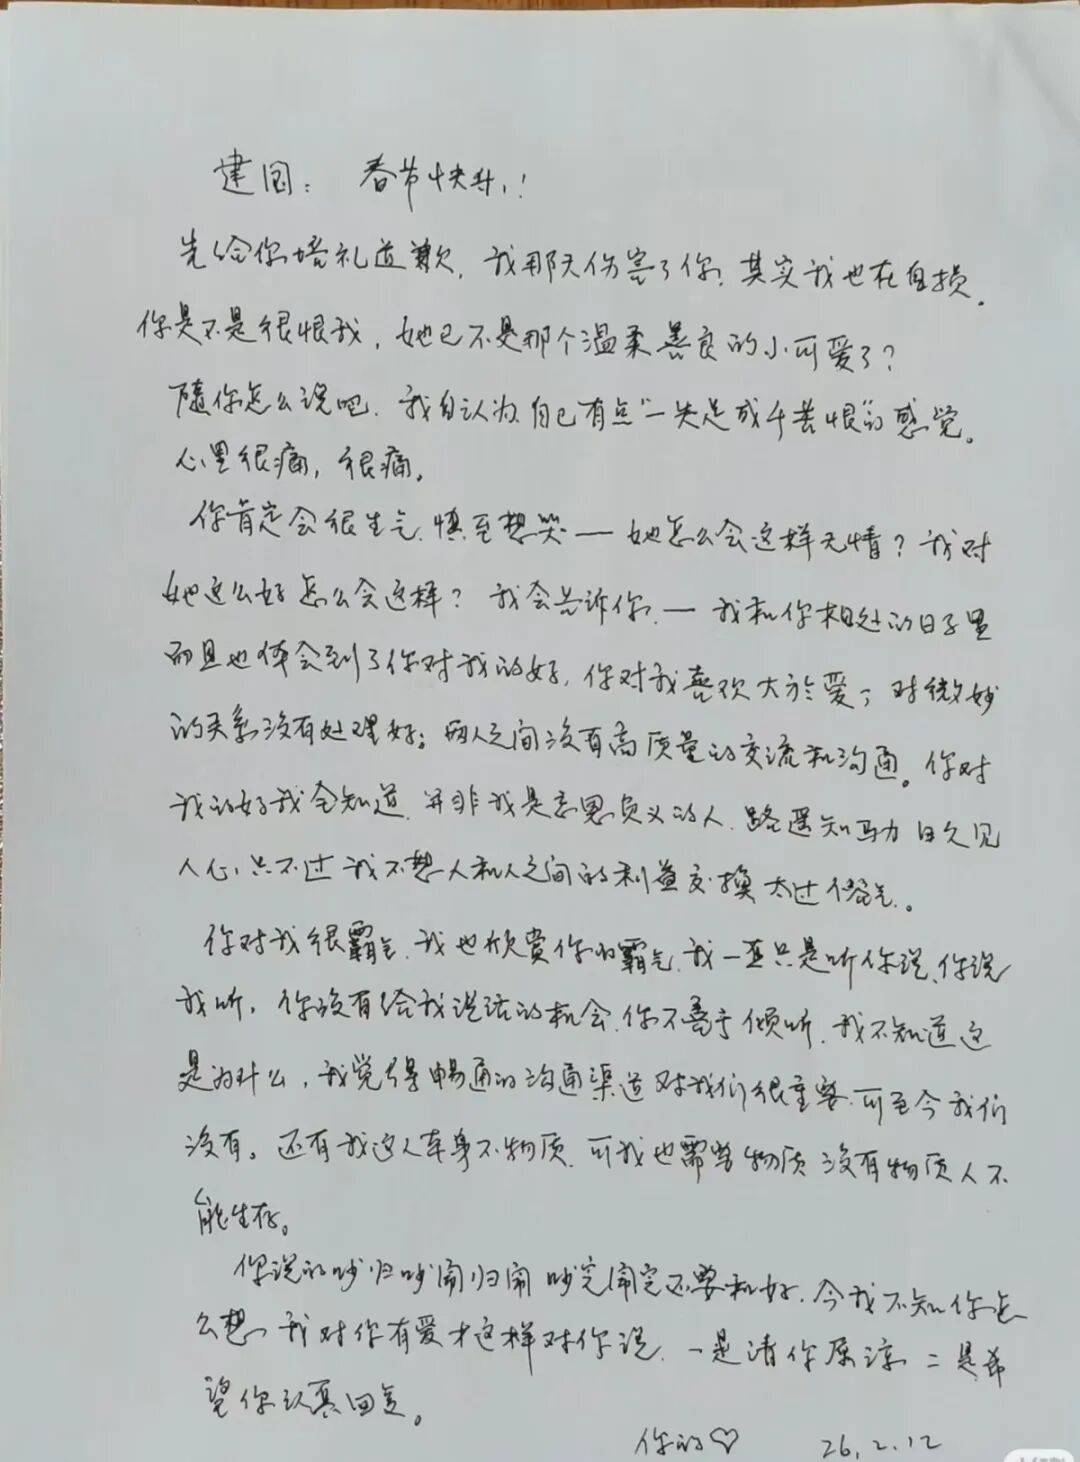 建国：春节快乐！
先给你培礼道歉，我那天伤害了你，其实我也在自损。
你是不是很恨我，她已不是那个温柔善良的小可爱了？
随你怎么说吧，我自认为自己有点“一失足成千苦恨”的感觉。
心里很痛，很痛。
你肯定会很生气，慎至想哭—她怎么会这样无情？我对
她这么好怎么会这样？我会告诉你，—我和你相处的日子里
而且也体会到了你对我的好，你对我喜欢大于爱，对微妙
的关系没有处理好；两人之间没有高质量的交流和沟通。你对
我的好我全知道，并非我是忘恩负义的人，路遥知马力日久见
人心，只不过我不想人和人之间的利益交换太过俗气。
你对我很霸气，我也欣赏你的霸气，我一直只是听你说，你说
我听，你没有给我说话的机会，你不善于倾听，我不知道这
是为什么，我觉得畅通的沟通渠道对我们很重要，可至今我们
没有。还有我这人本身不物质，可我也需要物质没有物质人不
能生存。
你说的吵归吵闹归闹吵完闹完还要和好，今我不知你怎
么想，我对你有爱才这样对你说，一是请你原谅二是希
望你认真回复。
你的♡ 26.2.12